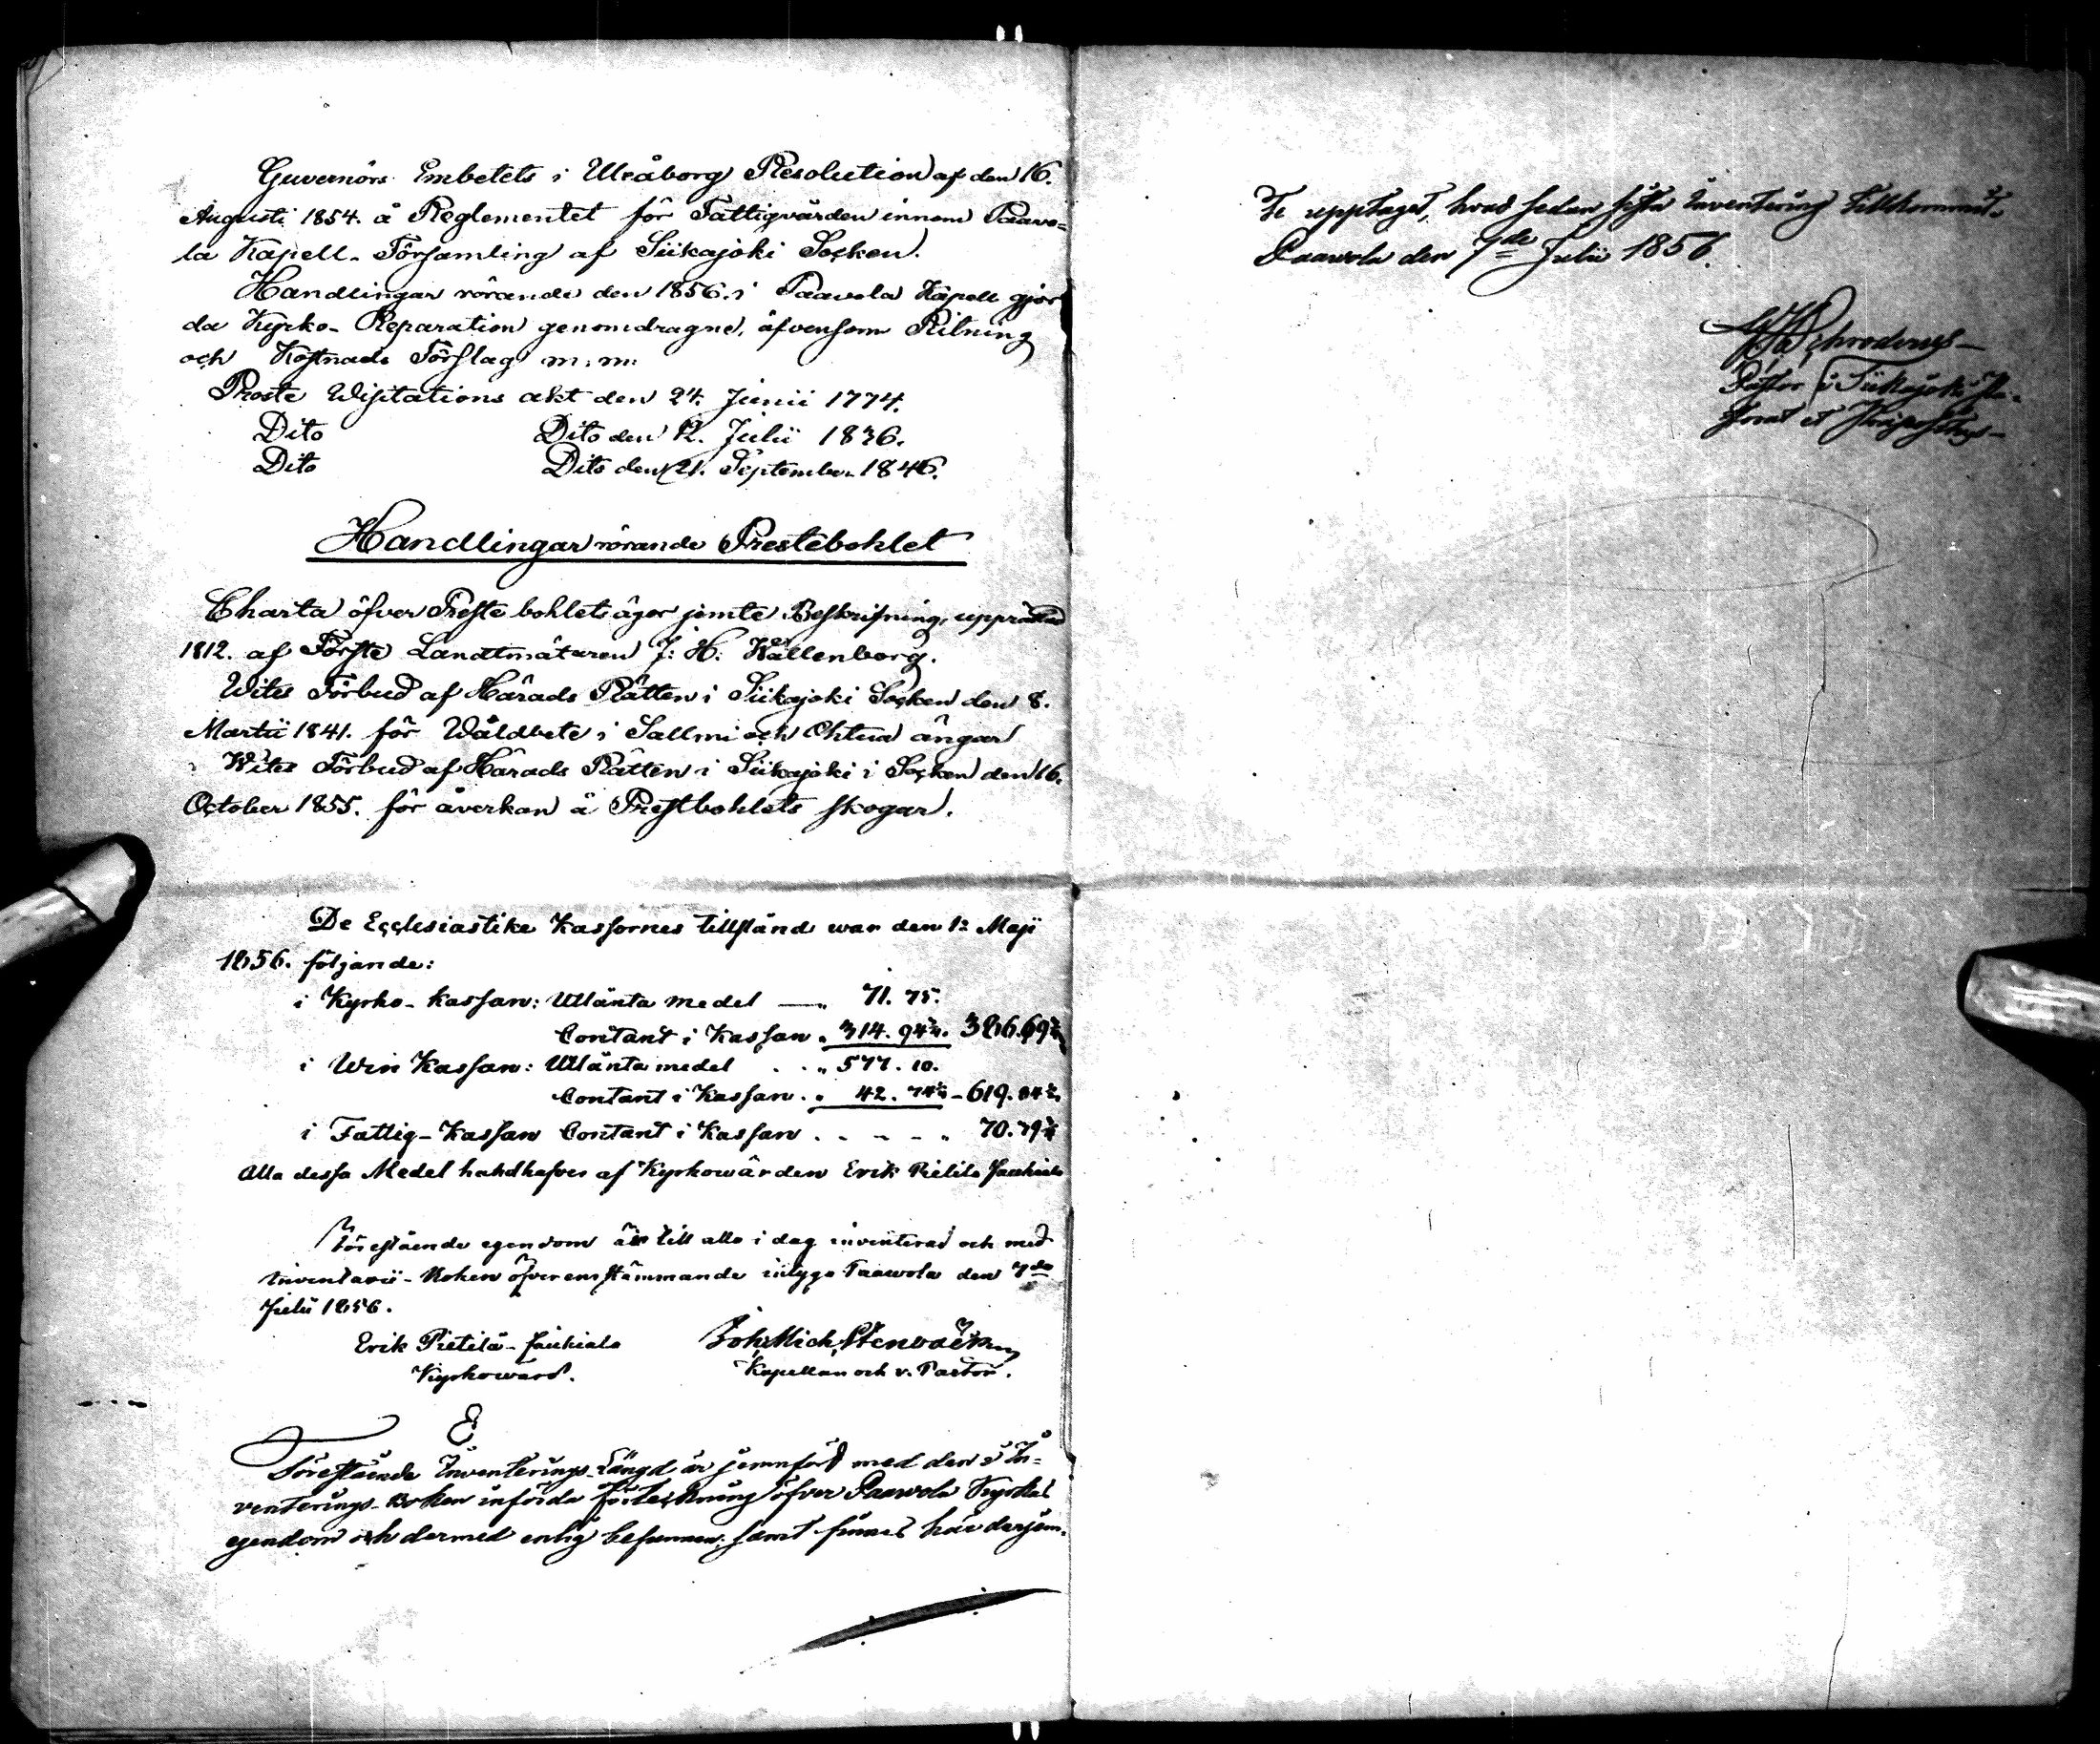 Guvernörs Embetets i Uleåborg Resolution af den 16.
Augusti 1854. å Reglementet för Fattigvården innom Paavo-
la Kapell-Församling af Siikajoki Socken.
Handlingar rörande den 1856. i Paavola Kapell gjor
da Kyrko-Reparation genomdragne, äfvensom Ritning
och Kostnads Förslag m: m:
Proste Visitations akt den 24. Junii 1774.
Dito Dito den 12. Julii 1836.
Dito Dito den 21. September 1846.
Handlingar rörande Prestebohlet
Charta öfver Preste bohlets ägor jemte Beskrifning, upprättad
1812. af Förste Landtmätaren J: H: Wallenborg.
Wites Förbud af Härads Rätten i Siikajoki Socken den 8.
Martii 1841. för Wåldbete i Sallmi och Ohtua ängar
Wites Förbud af Härads Rätten i Siikajoki i Socken den 16.
October 1855. för åverkan å Prestbohlets skogar.
De Ecclesiastike Kassornes tillstånd war den 1: Maji
1856. följande:
i Kyrko-kassan: Utlänta medel — „ 71. 75.
Contant i Kassan „ 314. 94½. 386.69½
i Win Kassan: Utlänta medel . . „ 577. 10.
Contant i Kassan . „ 42. 74½ - 619. 84½.
i Fattig-Kassan Contant i Kassan . . . . „ 70.79
Alla dessa Medel handhafves af Kyrkowärden Erik Pietilä Jaukiala
Förestående egendom är till alla i dag inventerad och med
Inventarii-Boken öfverensstämmande intyga Paawola den 7de
Julii 1856.
Erik Pietilä-Jaukiala Joh: Mich: Stenbäck
Kyrkowärd. Kapellan och v. Pastor.
Förestående Inventerings-Längd är jemnförd med den i In-
venterings-Boken införda förteckning öfver Paawola Kyrkas
egendom och dermed enlig befunnen; samt finnes här derjem-
te upptaget, hvad sedan sista Inventering tillkommit.
Paawola den 7de Julii 1856.
Schroderus
Pastor i Siikajoki Pa-
storat